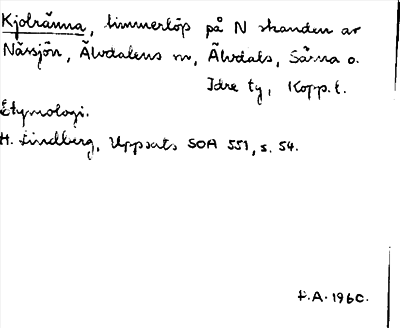 Kjolränna, timmerlöp på N stranden av
Nässjön, Älvdalens rev, Älvdals, Särna o.
Idre tg, Kopp. l.
Etymologi.
H. Lindberg, Uppsats SOA 551, s. 54.
F.A. 1960.